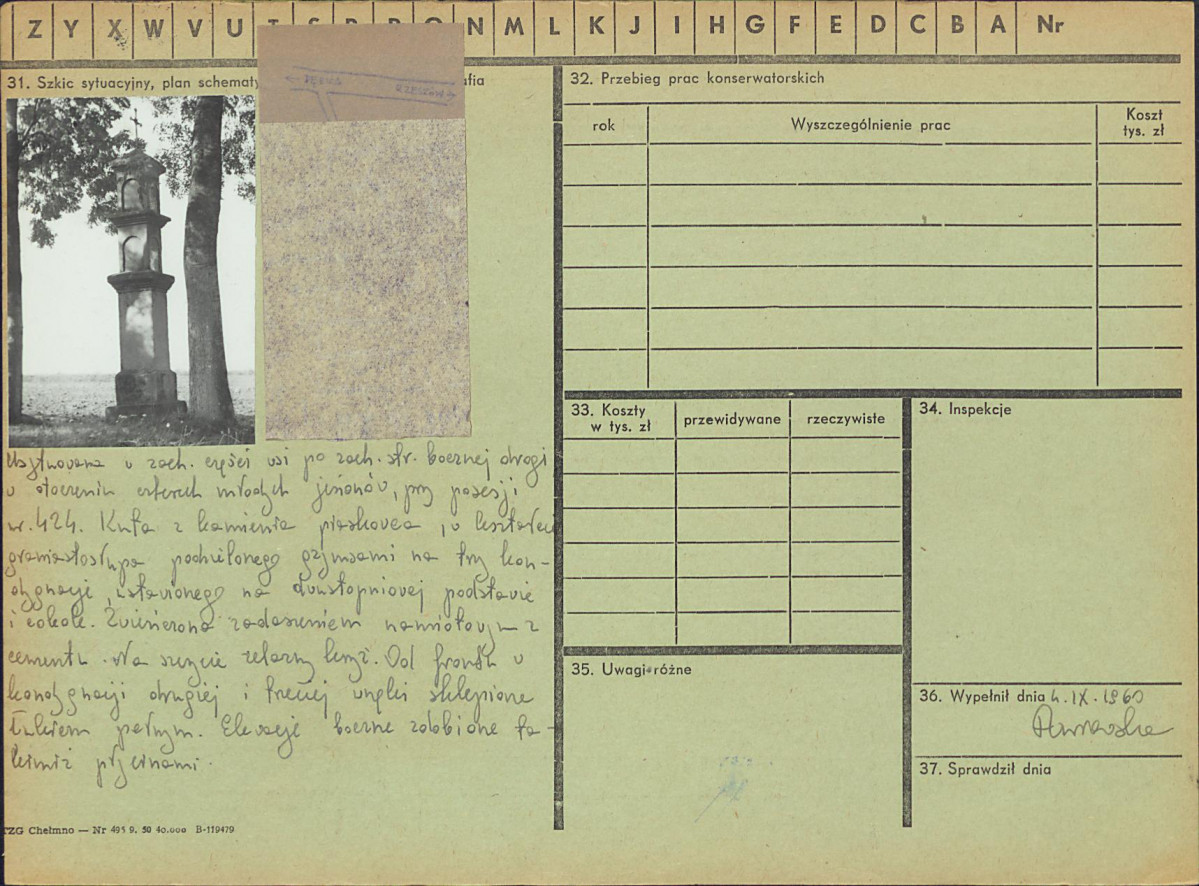 Z Y X W V U T S R P O N M L K J I H G F E D C B A Nr
31. Szkic sytuacyjny, plan schematy
fia
RZESZÓW
32. Przebieg prac konserwatorskich
rok
Wyszczególnienie prac
Koszt
tys. zł
Usytuowana w zach. części wsi po zach. str. bocznej drogi
w otoczeniu czterech młodych jesionów, przy posesji
nr. 424. Kuta z kamienia piaskowca, w kształcie
graniastosłupa podzielonego gzymsami na trzy kon-
dygnacje, ustawionego na dwustopniowej podstawie
i cokole. Zwieńczona zadaszeniem namiotowym z
cementu. Na szczycie żelazny krzyż. Od frontu w
kondygnacji drugiej i trzeciej wnęki sklepione
łukiem pełnym. Elewacje boczne zdobione ta-
kimiż płycinami.
33. Koszty
w tys. zł
przewidywane
rzeczywiste
34. Inspekcje
35. Uwagi różne
36. Wypełnił dnia 4.IX.1960
37. Sprawdził dnia
TZG Chełmno — Nr 495 9. 50 40.000 B-119479